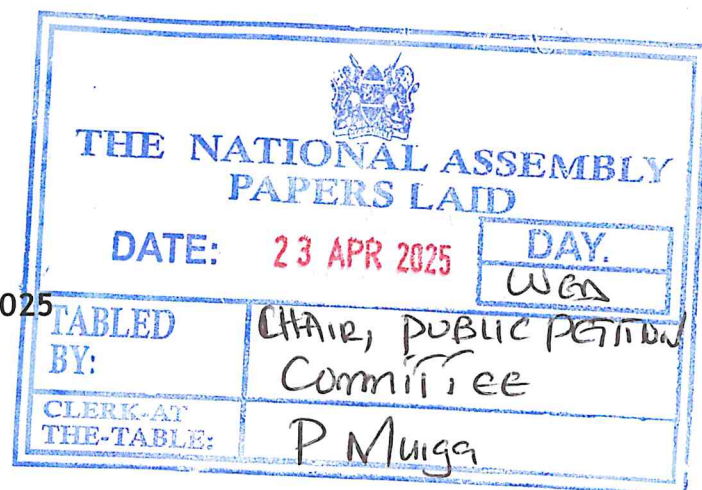 THE NATIONAL ASSEMBLY
PAPERS LAID
DATE: 23 APR 2025
DAY.
WED
025
TABLED BY: CHAIR, PUBLIC PETITION
Committee
CLERK-AT THE-TABLE: P Muiga